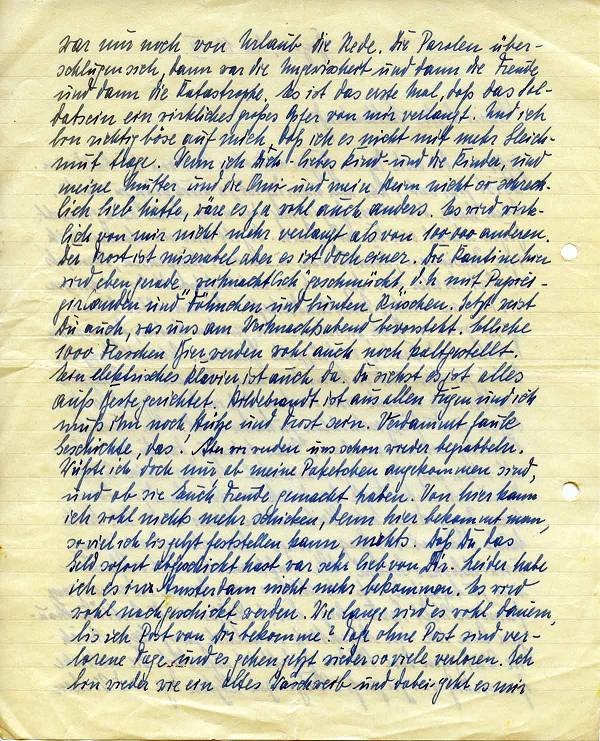 war nur noch von Urlaub die Rede. Die Parolen über-
schlugen sich, dann war die Ungewissheit und dann die Freude
und dann die Katastrophe. Es ist das erste Mal, daß das Sol-
datsein ein wirkliches großes Opfer von mir verlangt. Und ich
bin richtig böse auf mich, daß ich es nicht mit mehr Gleich-
mut trage. Wenn ich Dich - liebes Kind - und die Kinder, und
meine Mutter und die Omi und mein Heim nicht so schreck-
lich lieb hätte, wäre es ja wohl auch anders. Es wird wirk-
lich von mir nicht mehr verlangt als von 100 000 anderen.
Der Trost ist miserabel aber es ist doch einer. Die Kantine hier
wird eben gerade "weihnachtlich" geschmückt d. h. mit Papier-
girlanden und Fähnchen und bunten Rüschen. Jetzt weist
Du auch, was uns am Weihnachtsabend bevorsteht. Etliche
1000 Flaschen Bier werden wohl auch noch kaltgestellt.
Ein elektrisches Klavier ist auch da. Du siehst es ist alles
aufs Beste gerichtet. Hildebrandt ist aus allen Fugen und ich
muß ihm noch Stütze und Trost sein. Verdammt faule
Geschichte, das! Aber wir werden uns schon wieder begrabbeln.
Wüßte ich doch nur, ob meine Paketchen angekommen sind,
und ob sie Euch Freude gemacht haben. Von hier kann
ich wohl nichts mehr schicken, denn hier bekommt man,
soviel ich bis jetzt feststellen kann, nichts. Daß Du das
Geld sofort abgeschickt hast war sehr lieb von Dir. Leider habe
ich es in Amsterdam nicht mehr bekommen. Es wird
wohl nachgeschickt werden. Wie lange wird es wohl dauern,
bis ich Post von Dir bekomme? Tage ohne Post sind ver-
lorene Tage und es gehen jetzt wieder so viele verloren. Ich
bin wieder wie ein altes Waschweib und dabei geht es mir